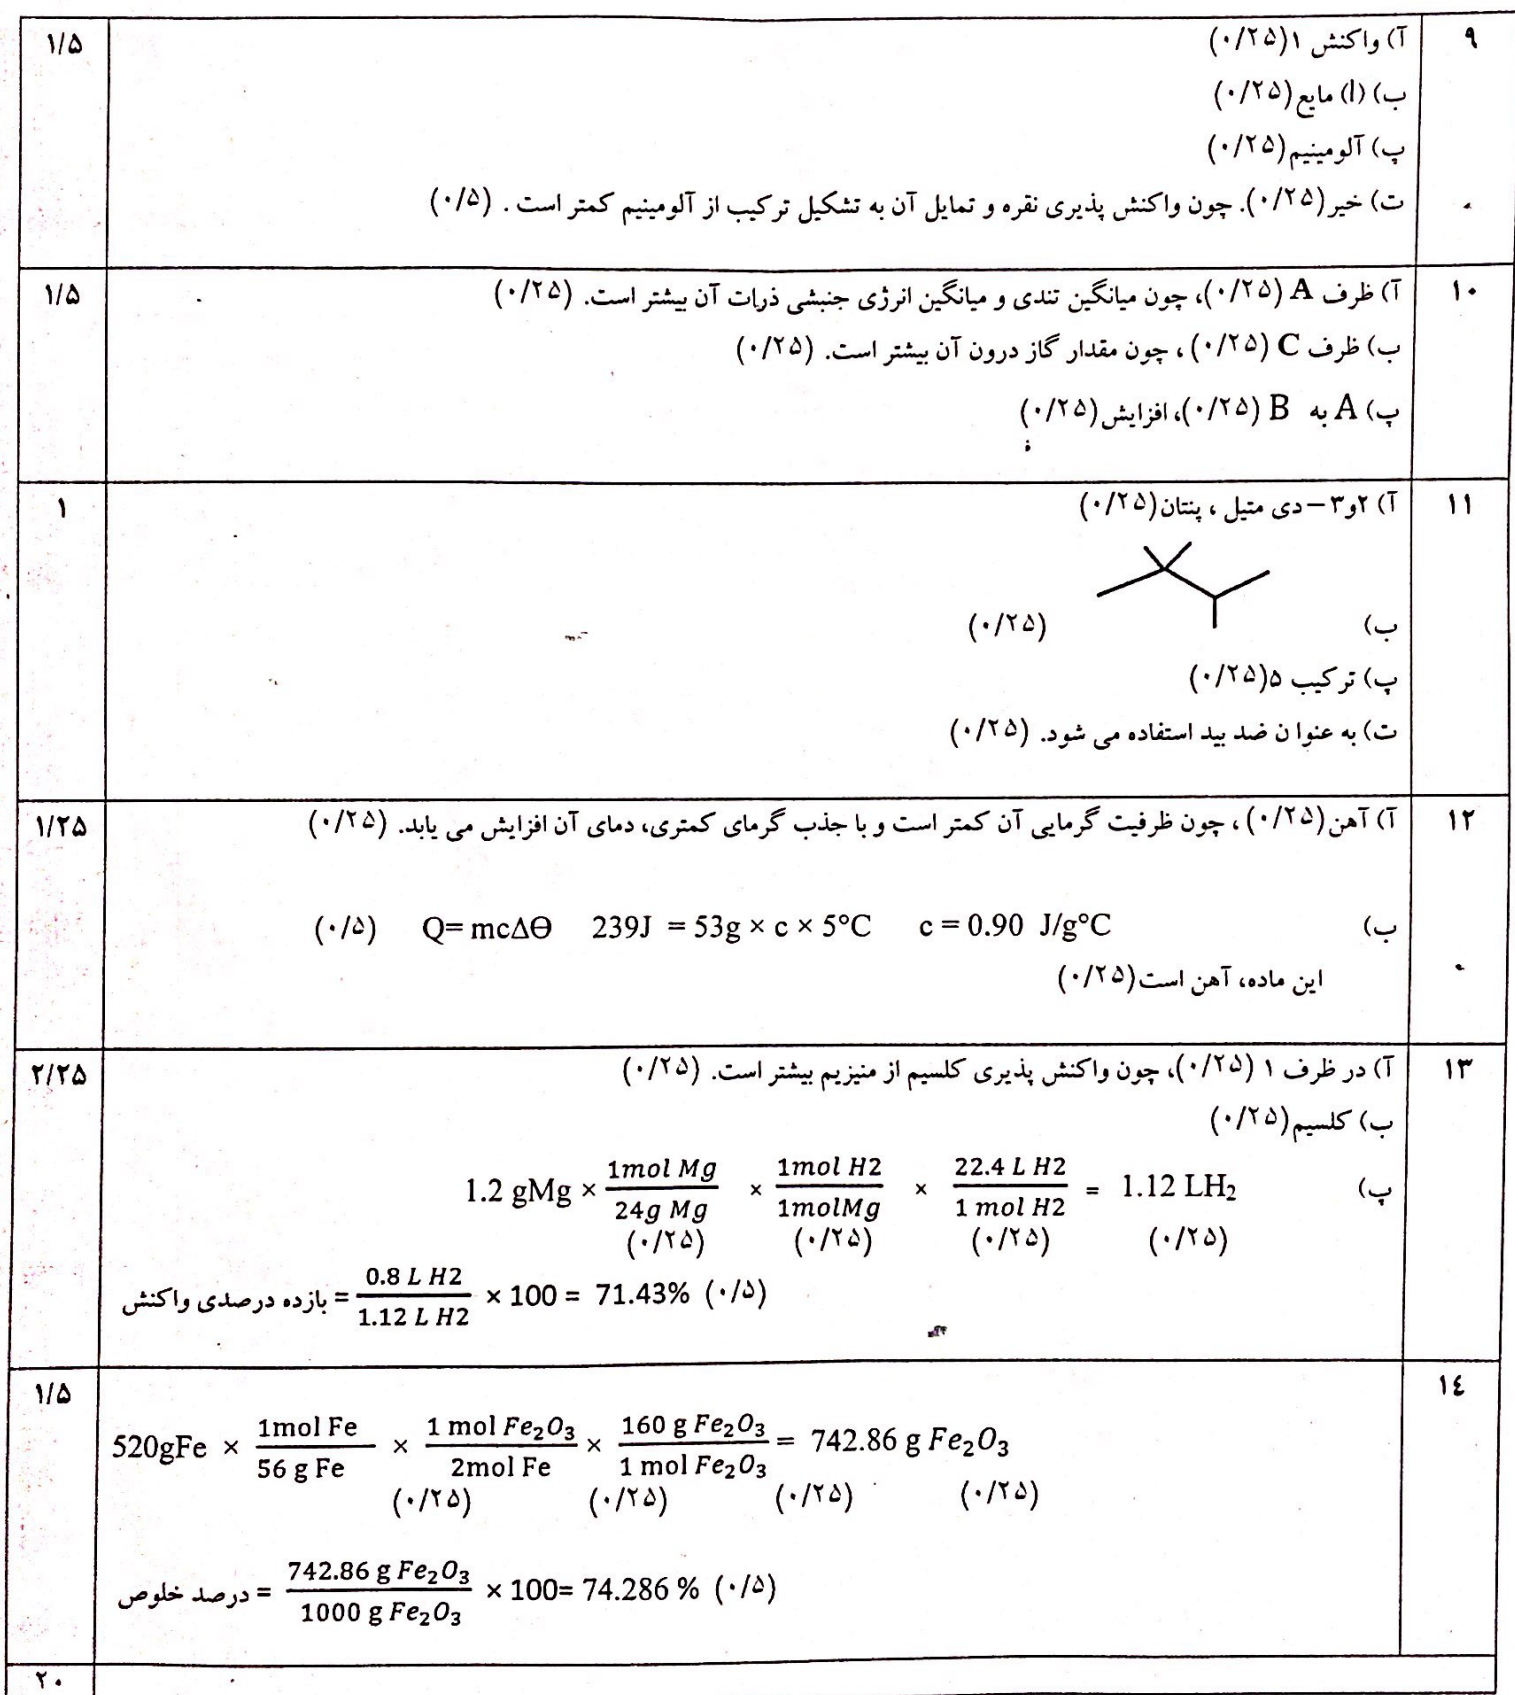 ۹
آ) واکنش ۱(۰/۲۵)
۱/۵
ب) (l) مایع(۰/۲۵)
پ) آلومینیم(۰/۲۵)
ت) خیر(۰/۲۵). چون واکنش پذیری نقره و تمایل آن به تشکیل ترکیب از آلومینیم کمتر است . (۰/۵)
۱۰
آ) ظرف A (۰/۲۵)، چون میانگین تندی و میانگین انرژی جنبشی ذرات آن بیشتر است. (۰/۲۵)
۱/۵
ب) ظرف C (۰/۲۵) ، چون مقدار گاز درون آن بیشتر است. (۰/۲۵)
پ) A به B (۰/۲۵)، افزایش(۰/۲۵)
۱۱
آ) ۲و۳ – دی متیل ، پنتان(۰/۲۵)
۱
ب) (۰/۲۵)
پ) ترکیب ۵(۰/۲۵)
ت) به عنوا ن ضد بید استفاده می شود. (۰/۲۵)
۱۲
آ) آهن(۰/۲۵) ، چون ظرفیت گرمایی آن کمتر است و با جذب گرمای کمتری، دمای آن افزایش می یابد. (۰/۲۵)
۱/۲۵
ب) Q= mcΔΘ 239J = 53g × c × 5°C c = 0.90 J/g°C (۰/۵)
این ماده، آهن است(۰/۲۵)
۱۳
آ) در ظرف ۱ (۰/۲۵)، چون واکنش پذیری کلسیم از منیزیم بیشتر است. (۰/۲۵)
۲/۲۵
ب) کلسیم(۰/۲۵)
پ) 1.2 gMg × 1mol Mg/24g Mg × 1mol H2/1molMg × 22.4 L H2/1 mol H2 = 1.12 LH₂
(۰/۲۵) (۰/۲۵) (۰/۲۵) (۰/۲۵)
بازده درصدی واکنش = 0.8 L H2/1.12 L H2 × 100 = 71.43% (۰/۵)
۱٤
۱/۵
520gFe × 1mol Fe/56 g Fe × 1 mol Fe₂O₃/2mol Fe × 160 g Fe₂O₃/1 mol Fe₂O₃ = 742.86 g Fe₂O₃
(۰/۲۵) (۰/۲۵) (۰/۲۵) (۰/۲۵)
درصد خلوص = 742.86 g Fe₂O₃/1000 g Fe₂O₃ × 100= 74.286 % (۰/۵)
۲۰